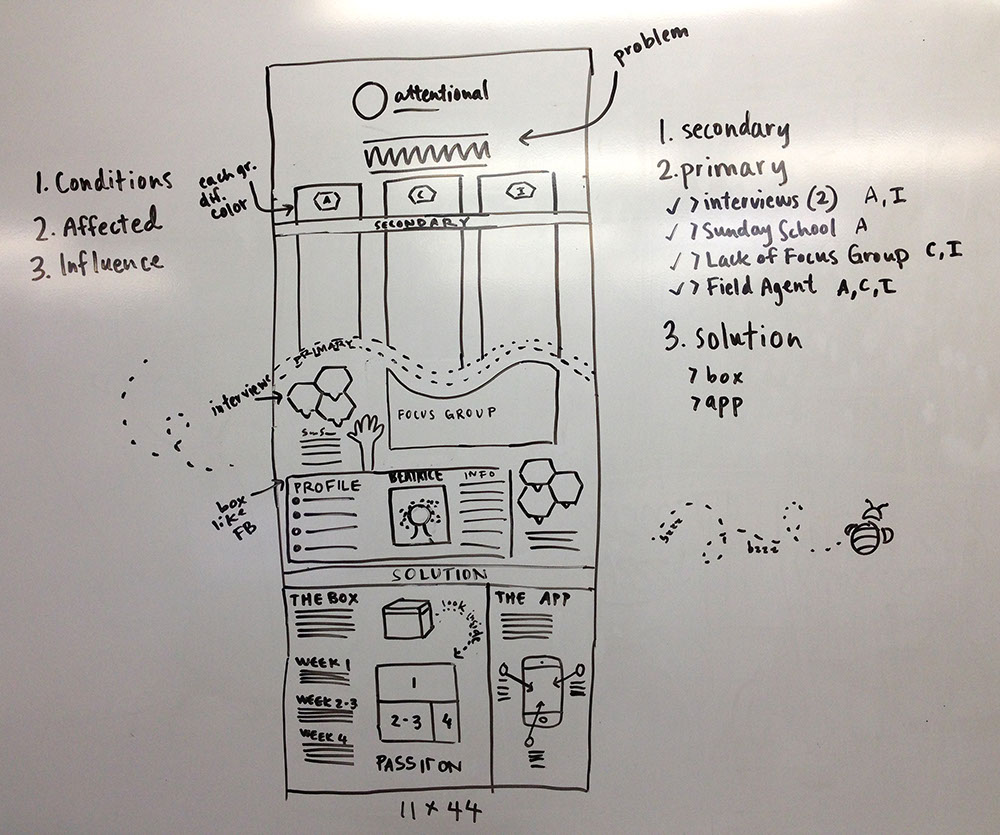 problem
attentional
1. Conditions
2. Affected
3. Influence
each gr.
dif.
color
A
C
I
SECONDARY
PRIMARY
interviews
FOCUS GROUP
PROFILE
BEATRICE
INFO
box
like
FB
SOLUTION
THE BOX
look inside
WEEK 1
WEEK 2-3
WEEK 4
1
2-3
4
PASS IT ON
THE APP
11 x 44
1. secondary
2. primary
✓ > interviews (2) A, I
✓ > Sunday School A
✓ > Lack of Focus Group C, I
✓ > Field Agent A, C, I
3. solution
> box
> app
bzzz
bzzz